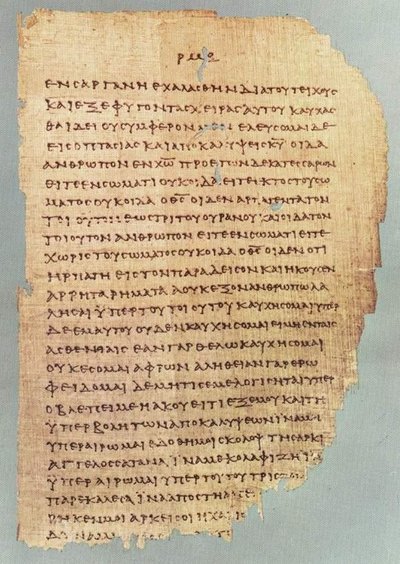 ΡΜΘ
ΕΝϹΑΡΓΑΝΗΕΧΑΛΑϹΘΗΝΔΙΑΤΟΥΤΕΙΧΟΥϹ
ΚΑΙΕΞΕΦΥΓΟΝΤΑϹΧΕΙΡΑϹΑΥΤΟΥΚΑΥΧΑϹ
ΘΑΙΔΕΙΟΥϹΥΜΦΕΡΟΝΜΕΝΕΛΕΥϹΟΜΑΙΔΕ
ΕΙϹΟΠΤΑϹΙΑϹΚΑΙΑΠΟΚΑΛΥΨΕΙϹΚ̅Υ̅ΟΙΔΑ
ΑΝΘΡΩΠΟΝΕΝΧ̅Ω̅ΠΡΟΕΤΩΝΔΕΚΑΤΕϹϹΑΡΩΝ
ΕΙΤΕΕΝϹΩΜΑΤΙΟΥΚΟΙΔΑΕΙΤΕΕΚΤΟϹΤΟΥϹΩ
ΜΑΤΟϹΟΥΚΟΙΔΑΟΘ̅Ϲ̅ΟΙΔΕΝΑΡΠΑΓΕΝΤΑΤΟΝ
ΤΟΙΟΥΤΟΝΕΩϹΤΡΙΤΟΥΟΥΡΑΝΟΥΚΑΙΟΙΔΑΤΟΝ
ΤΟΙΟΥΤΟΝΑΝΘΡΩΠΟΝΕΙΤΕΕΝϹΩΜΑΤΙΕΙΤΕ
ΧΩΡΙϹΤΟΥϹΩΜΑΤΟϹΟΥΚΟΙΔΑΟΘ̅Ϲ̅ΟΙΔΕΝΟΤΙ
ΗΡΠΑΓΗΕΙϹΤΟΝΠΑΡΑΔΕΙϹΟΝΚΑΙΗΚΟΥϹΕΝ
ΑΡΡΗΤΑΡΗΜΑΤΑΑΟΥΚΕΞΟΝΑΝΘΡΩΠΩΛΑ
ΛΗϹΑΙΥΠΕΡΤΟΥΤΟΙΟΥΤΟΥΚΑΥΧΗϹΟΜΑΙΥΠΕΡ
ΔΕΕΜΑΥΤΟΥΟΥΔΕΝΚΑΥΧΗϹΟΜΑΙΕΙΜΗΕΝΤΑΙϹ
ΑϹΘΕΝΕΙΑΙϹΕΑΝΓΑΡΘΕΛΩΚΑΥΧΗϹΟΜΑΙ
ΟΥΚΕϹΟΜΑΙΑΦΡΩΝΑΛΗΘΕΙΑΝΓΑΡΕΡΩ
ΦΕΙΔΟΜΑΙΔΕΜΗΤΙϹΕΜΕΛΟΓΙϹΗΤΑΙΥΠΕΡ
ΟΒΛΕΠΕΙΜΕΗΑΚΟΥΕΙΤΙΕΞΕΜΟΥΚΑΙΤΗ
ΥΠΕΡΒΟΛΗΤΩΝΑΠΟΚΑΛΥΨΕΩΝΙΝΑΜΗ
ΥΠΕΡΑΙΡΩΜΑΙΕΔΟΘΗΜΟΙϹΚΟΛΟΨΤΗϹΑΡΚΙ
ΑΓΓΕΛΟϹϹΑΤΑΝΑΙΝΑΜΕΚΟΛΑΦΙΖΗΙΝ
ΥΠΕΡΑΙΡΩΜΑΙΥΠΕΡΤΟΥΤΟΥΤΡΙϹ
ΠΑΡΕΚΑΛΕϹΑΙΝΑΑΠΟϹΤΗΑΠ
ΡΗΚΕΝΜΟΙΑΡΚΕΙϹΟΙΗΧΑΡΙϹ
ΔΥΝΑΜ